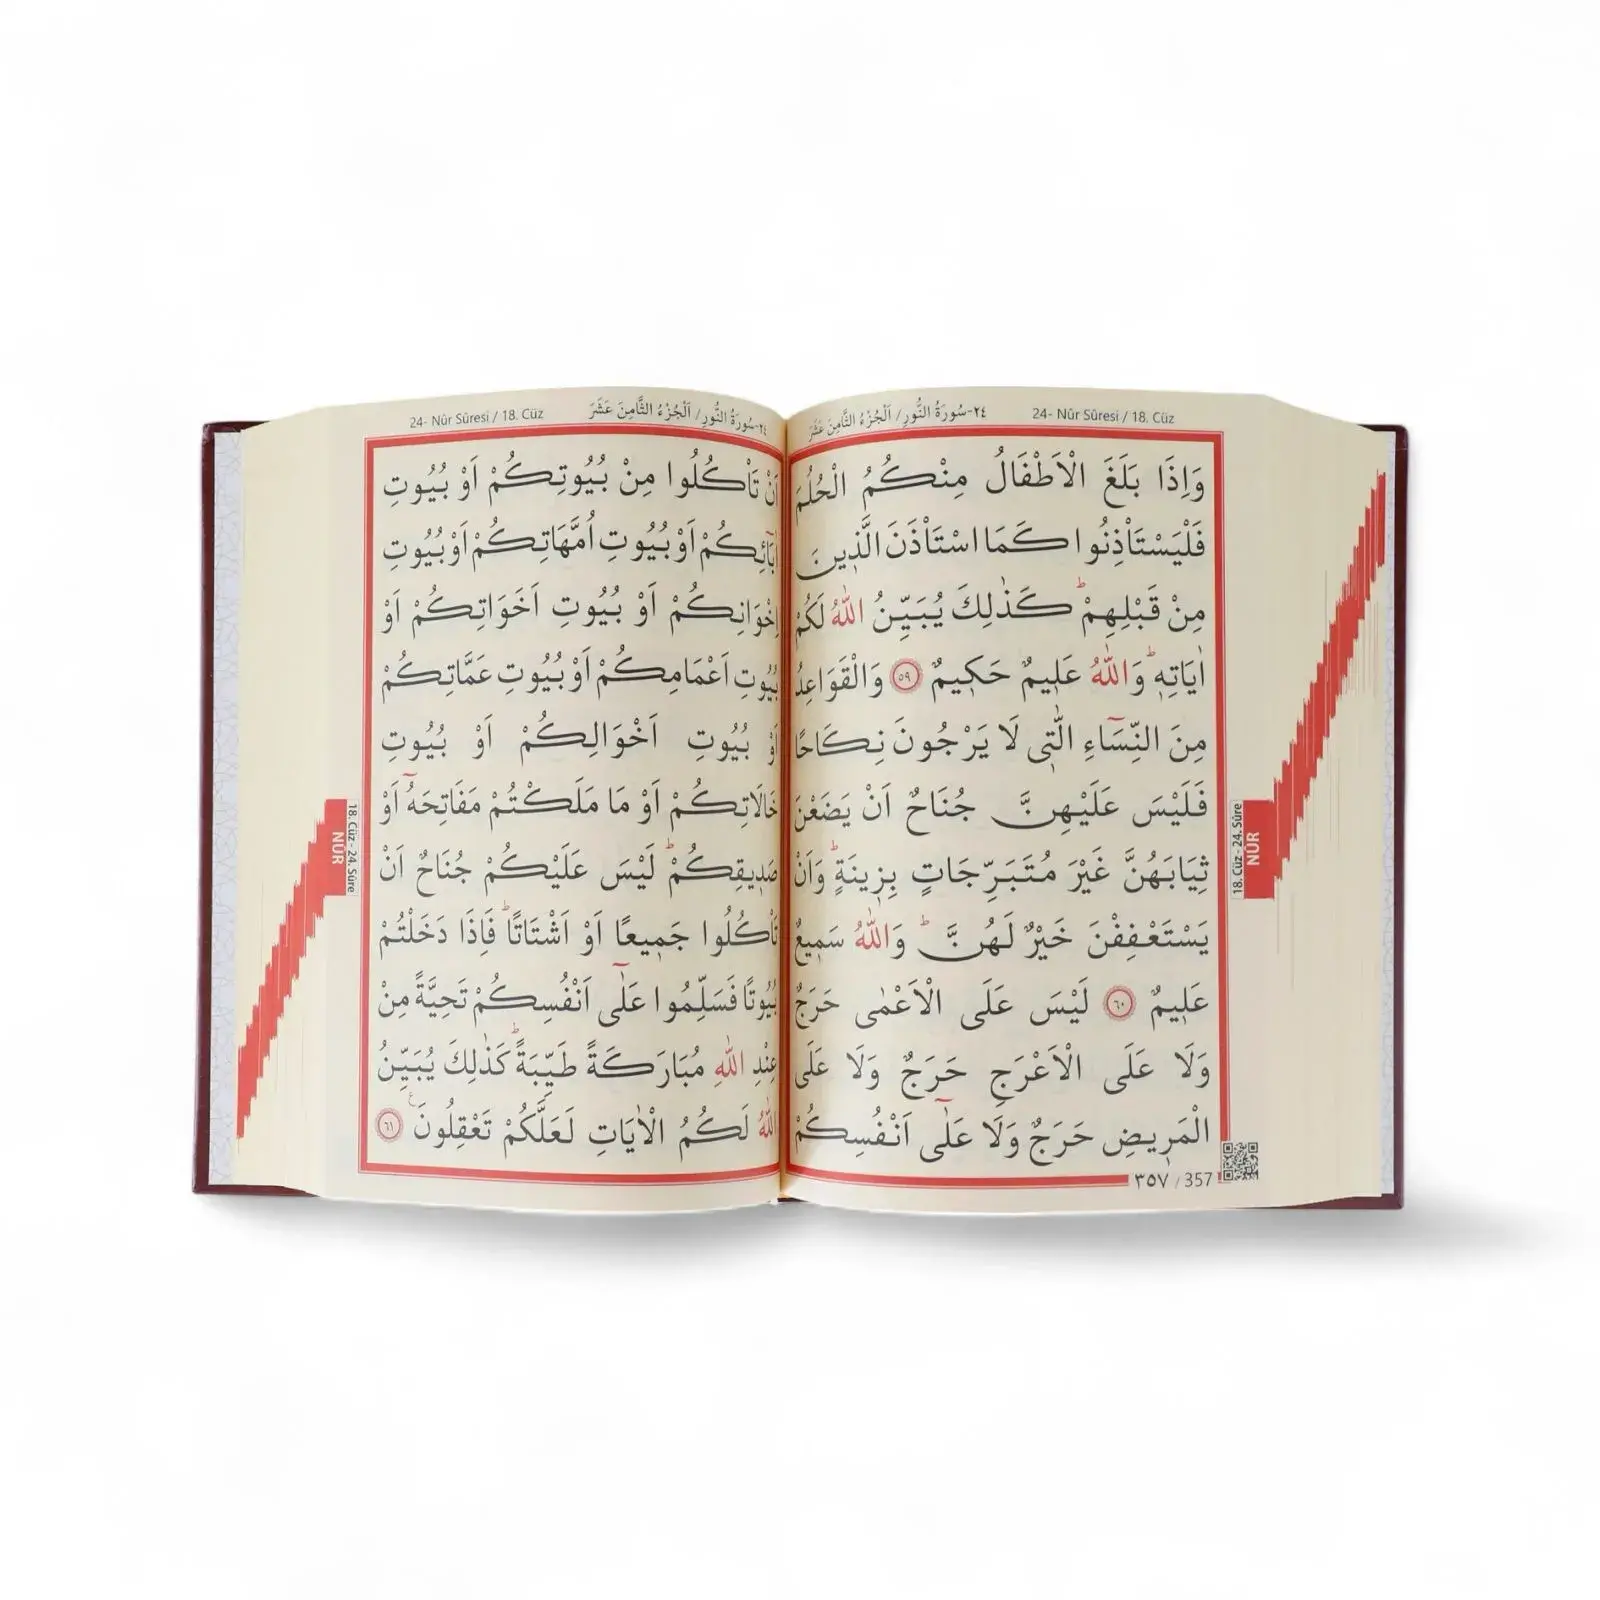 ٢٤-سُورَةُ النُّورِ / اَلْجُزْءُ الثَّامِنَ عَشَرَ 24- Nûr Sûresi / 18. Cüz
وَاِذَا بَلَغَ الْاَطْفَالُ مِنْكُمُ الْحُلُمَ
فَلْيَسْتَأْذِنُوا كَمَا اسْتَأْذَنَ الَّذ۪ينَ
مِنْ قَبْلِهِمْۜ كَذٰلِكَ يُبَيِّنُ اللّٰهُ لَكُمْ
اٰيَاتِه۪ۜ وَاللّٰهُ عَل۪يمٌ حَك۪يمٌ ﴿٥٩﴾ وَالْقَوَاعِدُ
مِنَ النِّسَٓاءِ الّٰت۪ى لَا يَرْجُونَ نِكَاحًا
فَلَيْسَ عَلَيْهِنَّ جُنَاحٌ اَنْ يَضَعْنَ
ثِيَابَهُنَّ غَيْرَ مُتَبَرِّجَاتٍ بِز۪ينَةٍۜ وَاَنْ
يَسْتَعْفِفْنَ خَيْرٌ لَهُنَّۜ وَاللّٰهُ سَم۪يعٌ
عَل۪يمٌ ﴿٦٠﴾ لَيْسَ عَلَى الْاَعْمٰى حَرَجٌ
وَلَا عَلَى الْاَعْرَجِ حَرَجٌ وَلَا عَلَى
الْمَر۪يضِ حَرَجٌ وَلَا عَلٰٓى اَنْفُسِكُمْ
٣٥٧ / 357
18. Cüz - 24. Sûre
NÛR
٢٤-سُورَةُ النُّورِ / اَلْجُزْءُ الثَّامِنَ عَشَرَ 24- Nûr Sûresi / 18. Cüz
اَنْ تَأْكُلُوا مِنْ بُيُوتِكُمْ اَوْ بُيُوتِ
اٰبَٓائِكُمْ اَوْ بُيُوتِ اُمَّهَاتِكُمْ اَوْ بُيُوتِ
اِخْوَانِكُمْ اَوْ بُيُوتِ اَخَوَاتِكُمْ اَوْ
بُيُوتِ اَعْمَامِكُمْ اَوْ بُيُوتِ عَمَّاتِكُمْ
اَوْ بُيُوتِ اَخْوَالِكُمْ اَوْ بُيُوتِ
خَالَاتِكُمْ اَوْ مَا مَلَكْتُمْ مَفَاتِحَهُٓ اَوْ
صَد۪يقِكُمْۜ لَيْسَ عَلَيْكُمْ جُنَاحٌ اَنْ
تَأْكُلُوا جَم۪يعًا اَوْ اَشْتَاتًاۜ فَاِذَا دَخَلْتُمْ
بُيُوتًا فَسَلِّمُوا عَلٰٓى اَنْفُسِكُمْ تَحِيَّةً مِنْ
عِنْدِ اللّٰهِ مُبَارَكَةً طَيِّبَةًۜ كَذٰلِكَ يُبَيِّنُ
اللّٰهُ لَكُمُ الْاٰيَاتِ لَعَلَّكُمْ تَعْقِلُونَ ع ﴿٦١﴾
18. Cüz - 24. Sûre
NÛR